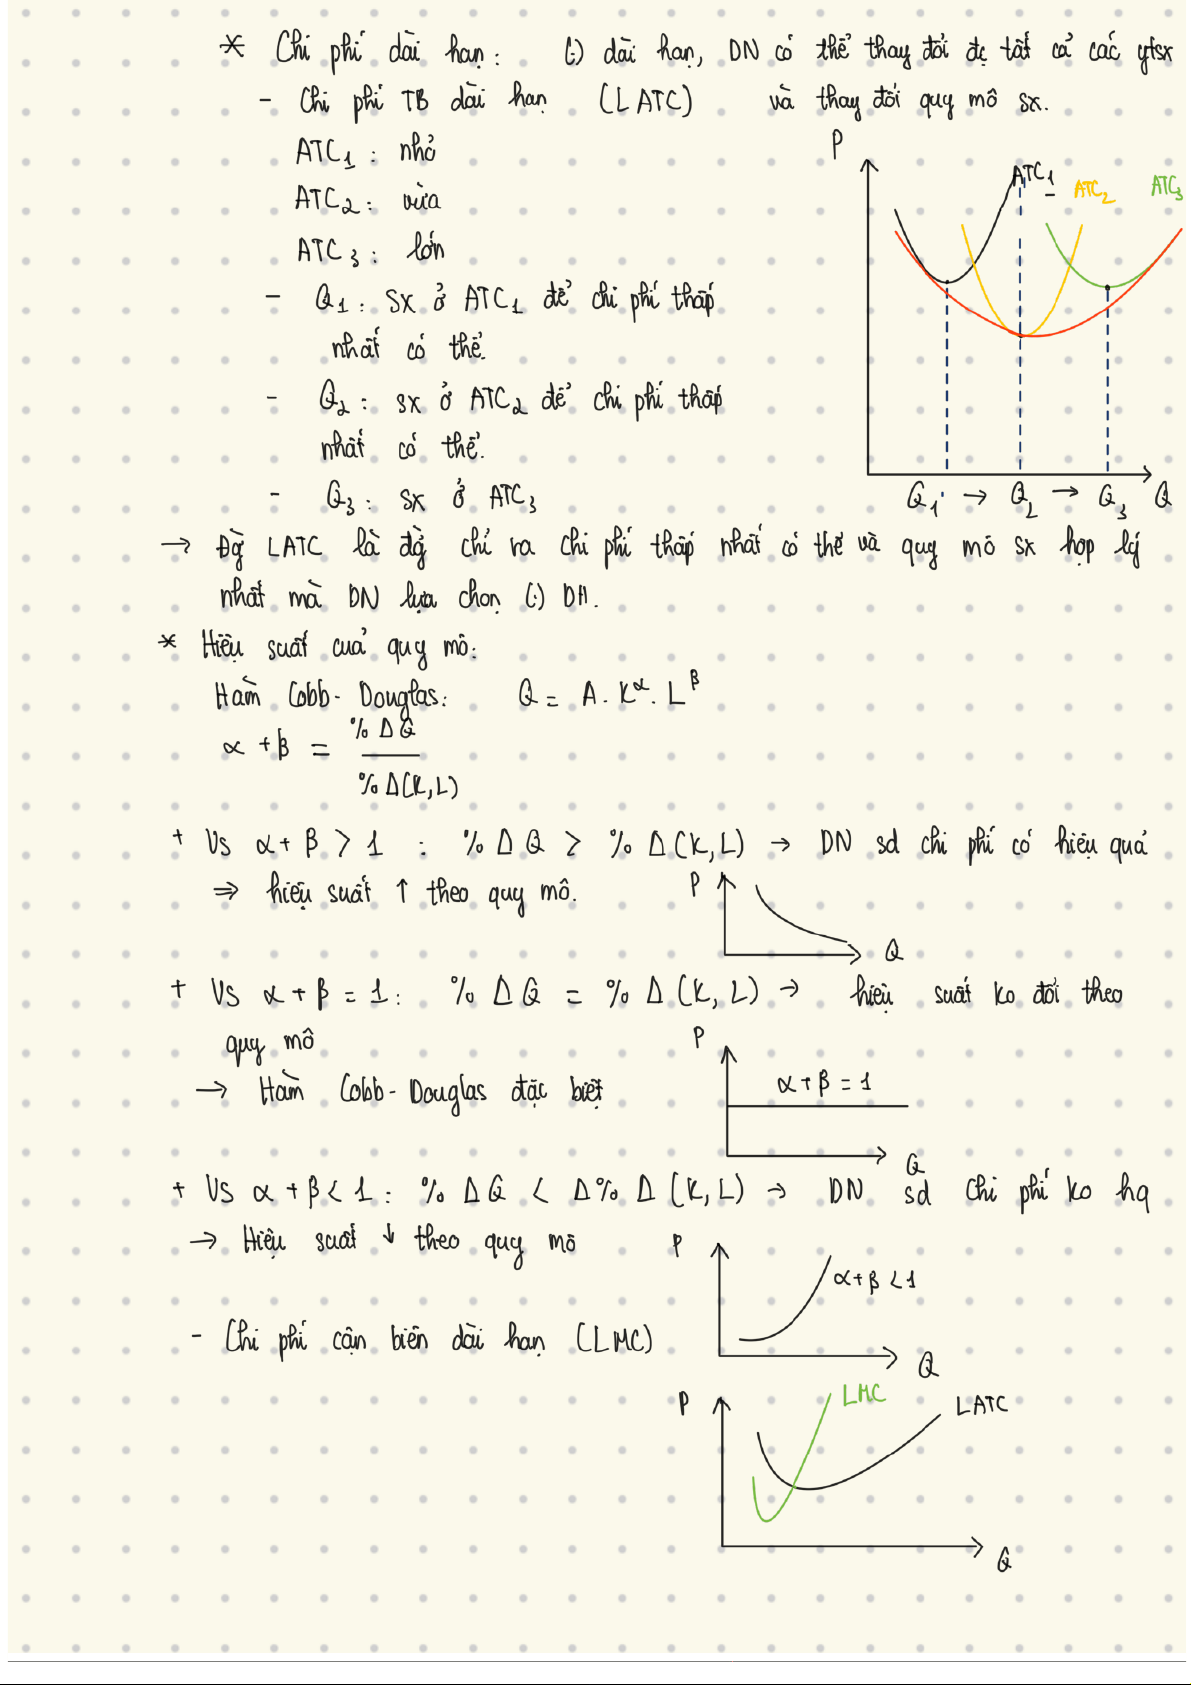 * Chi phí dài hạn: (.) dài hạn, DN có thể thay đổi đc tất cả các ytsx
- Chi phí TB dài hạn (LATC) và thay đổi quy mô sx.
ATC1: nhỏ
ATC2: vừa
ATC3: lớn
P
ATC1
ATC2
ATC3
- Q1: SX ở ATC1 để chi phí thấp
nhất có thể.
- Q2: sx ở ATC2 để chi phí thấp
nhất có thể.
- Q3: SX ở ATC3
Q1 → Q2 → Q3 Q
→ Đg LATC là đg chỉ ra chi phí thấp nhất có thể và quy mô sx hợp lý
nhất mà DN lựa chọn (.) DH.
* Hiệu suất của quy mô:
Hàm Cobb-Douglas: Q = A. K^α. L^β
α + β = %ΔQ / %Δ(K,L)
+ Vs α + β > 1 : % Δ Q > % Δ (K,L) → DN sd chi phí có hiệu quả
⇒ hiệu suất ↑ theo quy mô.
P
Q
+ VS α + β = 1: % Δ Q = % Δ (K, L) → hiệu suất ko đổi theo
quy mô
P
→ Hàm Cobb-Douglas đặc biệt
α + β = 1
Q
+ VS α + β < 1: % Δ Q < Δ % Δ (K, L) → DN sd chi phí ko hq
→ Hiệu suất ↓ theo quy mô
P
α + β < 1
Q
- Chi phí cận biên dài hạn (LMC)
P
LMC
LATC
Q